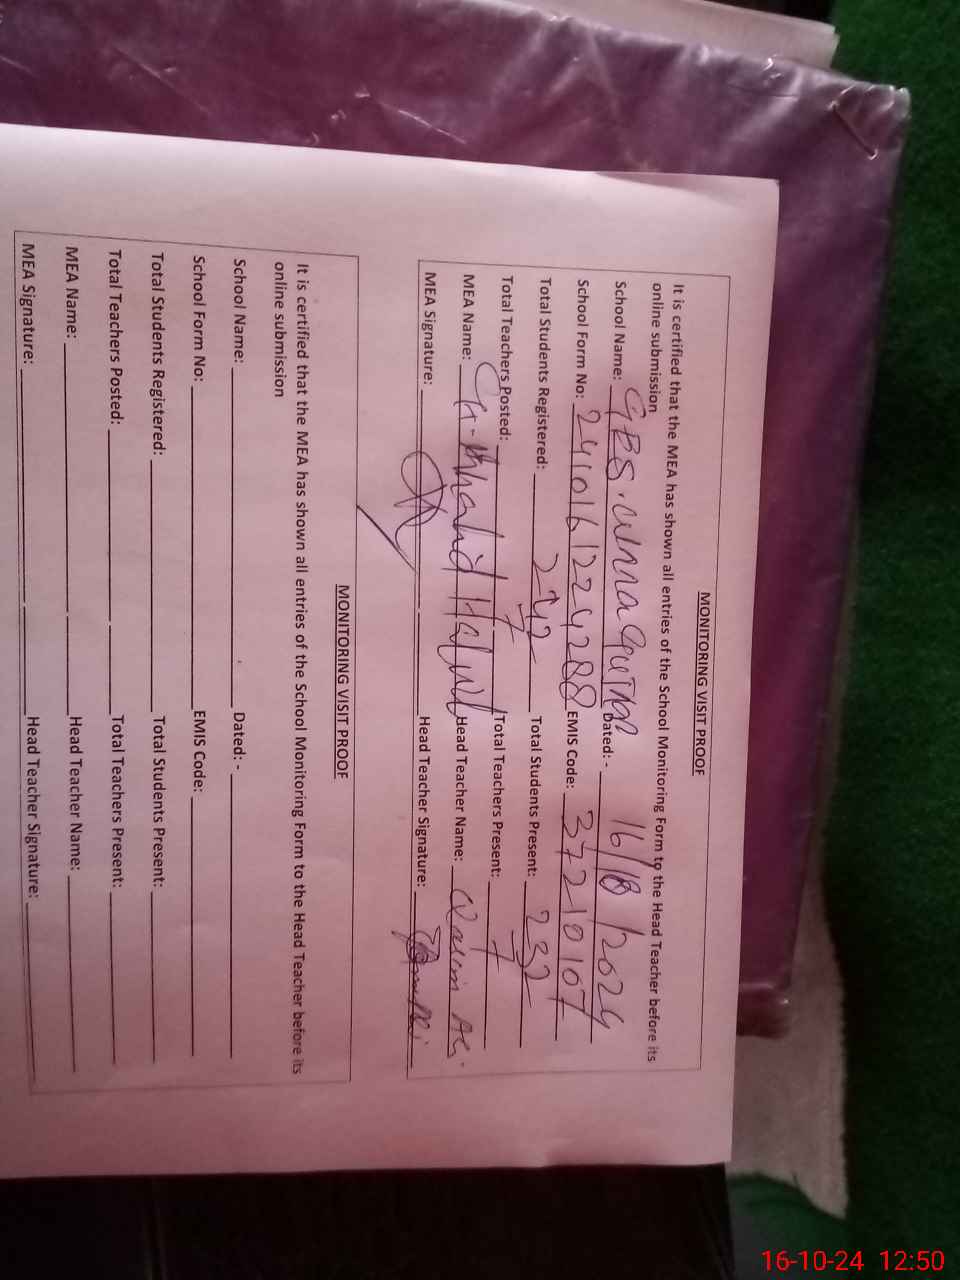 MONITORING VISIT PROOF
It is certified that the MEA has shown all entries of the School Monitoring Form to the Head Teacher before its
online submission
School Name: GES. Dated: - 16/10/2024
School Form No: 2410161224288 EMIS Code: 37210107
Total Students Registered: 242 Total Students Present: 232
Total Teachers Posted: 7 Total Teachers Present: 7
MEA Name: Ch. Khalid Head Teacher Name:
MEA Signature: Head Teacher Signature:
MONITORING VISIT PROOF
It is certified that the MEA has shown all entries of the School Monitoring Form to the Head Teacher before its
online submission
School Name: Dated: -
School Form No: EMIS Code:
Total Students Registered: Total Students Present:
Total Teachers Posted: Total Teachers Present:
MEA Name: Head Teacher Name:
MEA Signature: Head Teacher Signature:
16-10-24 12:50